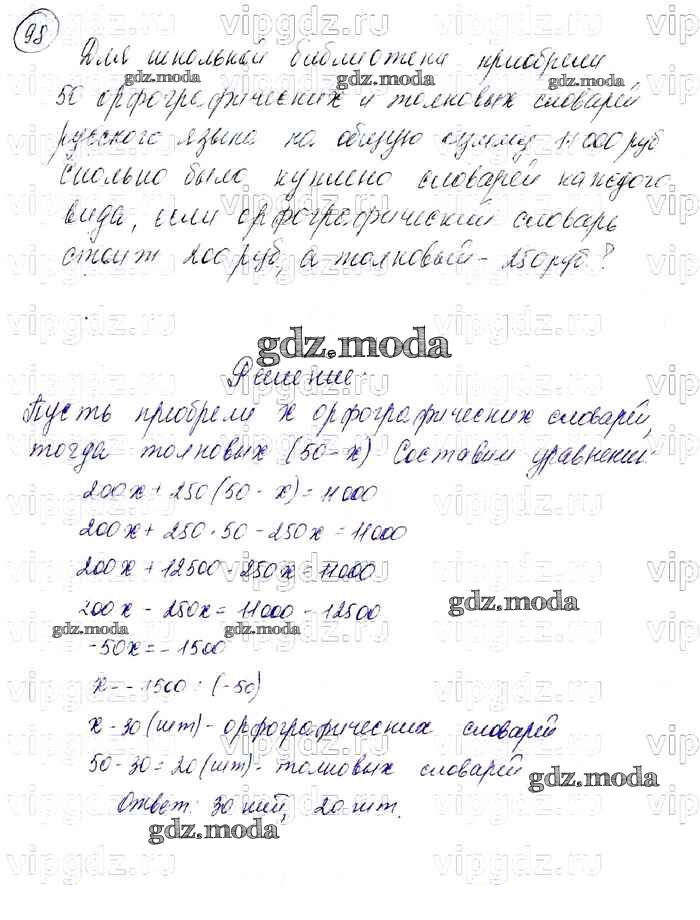 98
Для школьной библиотеки приобрели
50 орфографических и толковых словарей
русского языка на общую сумму 11000 руб
Сколько было куплено словарей каждого
вида, если орфографический словарь
стоит 200 руб, а толковый - 250 руб?
gdz.moda
Решение.
Пусть приобрели х орфографических словарей,
тогда толковых (50-х) Составим уравнение:
200х + 250(50 - х) = 11000
200х + 250·50 - 250х = 11000
200х + 12500 - 250х = 11000
200х - 250х = 11000 - 12500
gdz.moda
-50х = - 1500
х = - 1500 : (-50)
х - 30 (шт) - орфографических словарей
50 - 30 = 20 (шт) - толковых словарей
gdz.moda
Ответ: 30 20 шт.
gdz.moda
vipgdz.ru